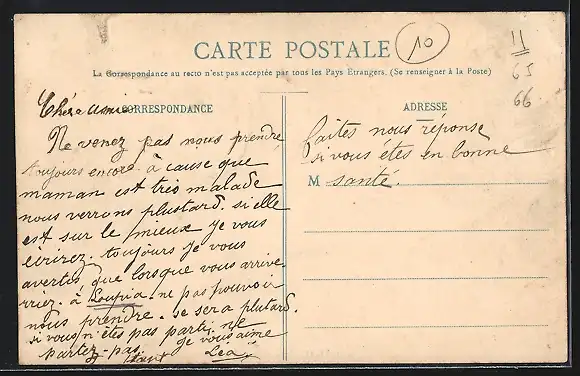 CARTE POSTALE
10
11
65
66
La Correspondance au recto n'est pas acceptée par tous les Pays Etrangers. (Se renseigner à la Poste)
Chère amie
CORRESPONDANCE
Ne venez pas nous prendre
toujours encore à cause que
maman est trio malade
nous verrons plustard. si elle
est sur le mieux je vous
écrirez. toujours je vous
avertes que lorsque vous arrive-
rriez. à Loupia. ne pas pouvoir
nous prendre. se sera plutard.
si vous n'êtes pas parti. ne
partez-pas. Je vous aime
Léa
ADRESSE
faites nous réponse
si vous êtes en bonne
M santé.